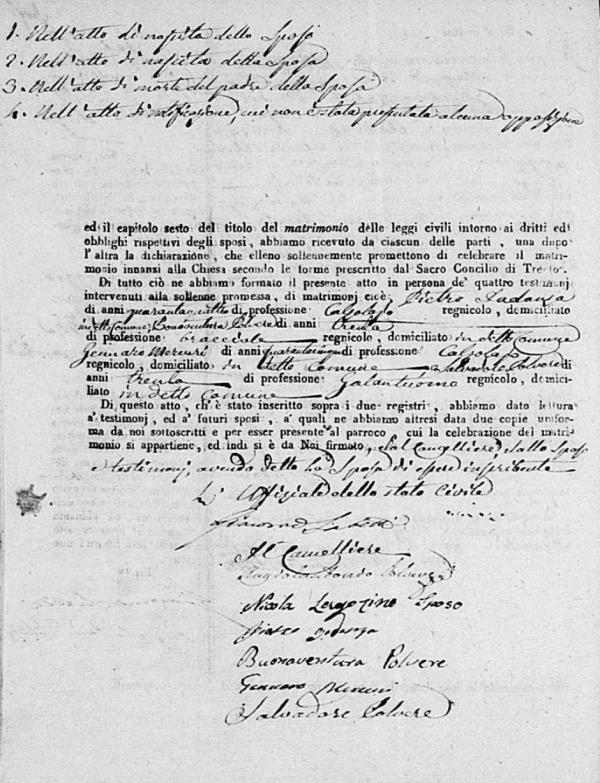 1. Nell'atto di nascita dello Sposo
2. Nell'atto di nascita della Sposa
3. Nell'atto di morte del padre della Sposa
4. Nell'atto di notificazione, cui non è stata presentata alcuna opposizione
ed il capitolo sesto del titolo del matrimonio delle leggi civili intorno ai dritti ed
obblighi rispettivi degli sposi, abbiamo ricevuto da ciascun delle parti, una dopo
l'altra la dichiarazione, che elleno sollennemente promettono di celebrare il matri-
monio innanzi alla Chiesa secondo le forme prescritto dal Sacro Concilio di Trento.
Di tutto ciò ne abbiamo formato il presente atto in persona de' quattro testimonj
intervenuti alla sollenne promessa, di matrimonj cioè, Pietro
di anni quarantaquattro di professione Calzolajo regnicolo, domiciliato
in detto Comune, Bonaventura Polvere di anni trenta
di professione bracciale regnicolo, domiciliato in detto Comune
Gennaro Mercuri di anni quarantacinque di professione Calzolajo
regnicolo, domiciliato in detto Comune e Salvadore Polvere di
anni trenta di professione Galantuomo regnicolo, domici-
liato in detto Comune
Di questo atto, ch'è stato inscritto sopra i due registri, abbiamo dato lettura
a' testimonj, ed a' futuri sposi, a' quali ne abbiamo altresì data due copie unifor-
ma da noi sottoscritti e per esser presente al parroco cui la celebrazione del matri-
monio si appartiene, ed indi si è da Noi firmato, dal Cancelliere, dallo Sposo
e testimonj, avendo detto la Sposa di essere inscribente
L'Uffiziale dello stato Civile
Il Cancelliere
Polvere
Nicola Sposo
Buonaventura Polvere
Gennaro Mercuri
Salvadore Polvere